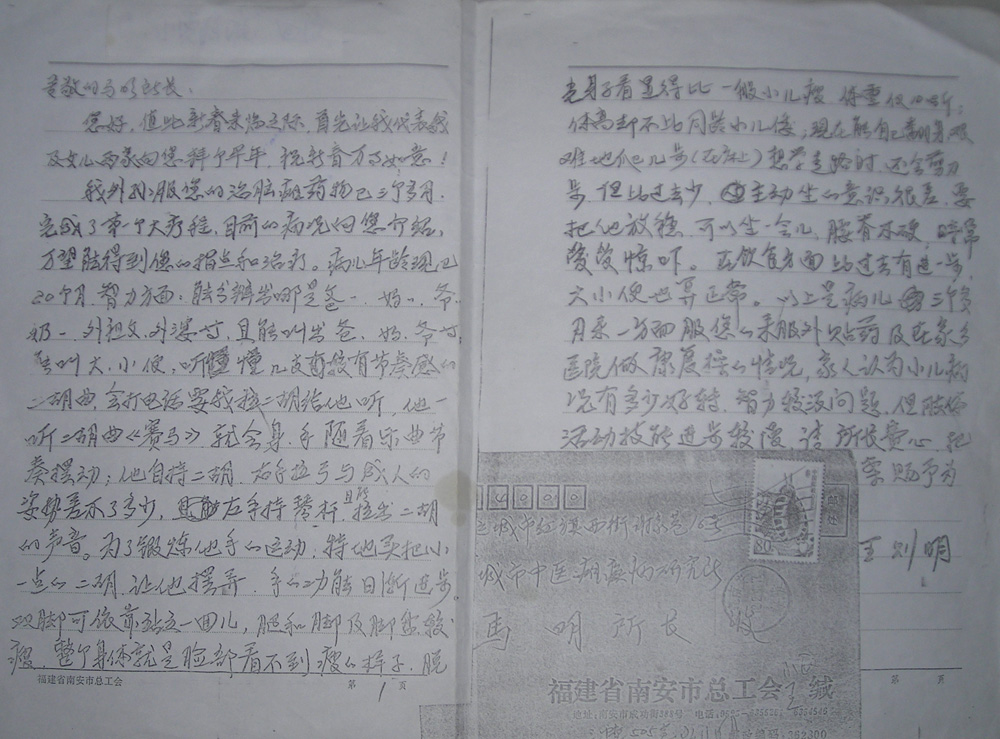 尊敬的马明所长:
您好,值此新春来临之际,首先让我代表我
及女儿两家向您拜个早年,祝新春万事如意!
我外孙服您的治脑瘫药物已三个多月,
完成了第一个大疗程,目前的病况向您介绍,
万望能得到您的指点和治疗。病儿年龄现已
20个月,智力方面:能分辨出哪是爸一、妈一、爷
奶一、外祖父、外婆等,且能叫出爸、妈、爷等
会叫大、小便,听懂几支有较有节奏感的
二胡曲,会打电话要我拉二胡给他听,他一
听二胡曲《赛马》就会身、手随着乐曲节
奏摆动;他自持二胡,右手拉弓与成人的
姿势差不了多少,左手持琴杆,拉出二胡
的声音。为了锻炼他手的运动,特地买把小
一点的二胡,让他摆弄,手的功能日渐进步。
双脚可依靠站立一回儿,腿和脚及脚盘较
瘦,整个身体就是脸部看不到瘦的样子,脱
福建省南安市总工会
第1页
光身子看显得比一般小儿瘦,体重仅
体高却不比同龄小儿矮;现在能自己翻身,艰
难地爬几步(在床上)想学走路时,还会剪刀
步,但比过去少,主动坐的意识很差,要
把他放稳,可以坐一会儿,腰脊不硬,时常
受惊吓。在饮食方面比过去有进步,
大小便也算正常。以上是病儿三个多
月来一方面服您的来服外贴药及在泉州
医院做康复操的情况,家人认为小儿病
况有多少好转,智力较没问题,但肢体
活动技能进步较慢,请所长费心,把
案赐予为
王则明
运城市红旗西街
城市中医脑病研究所
马明所长
收
80
福建省南安市总工会 王 缄
地址:南安市成功街388号 电话:
邮政编码:362300
第 页